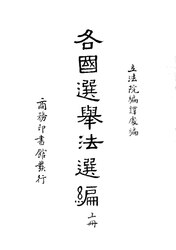 立法院編譯處編
各國選舉法選編
上冊
商務印書館發行